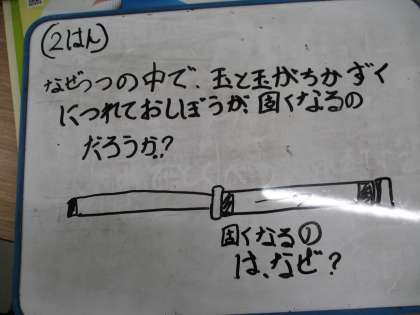 (2はん)
なぜつつの中で、玉と玉がちかずく
につれておしぼうが、固くなるの
だろうか?
固くなるの
は、なぜ?